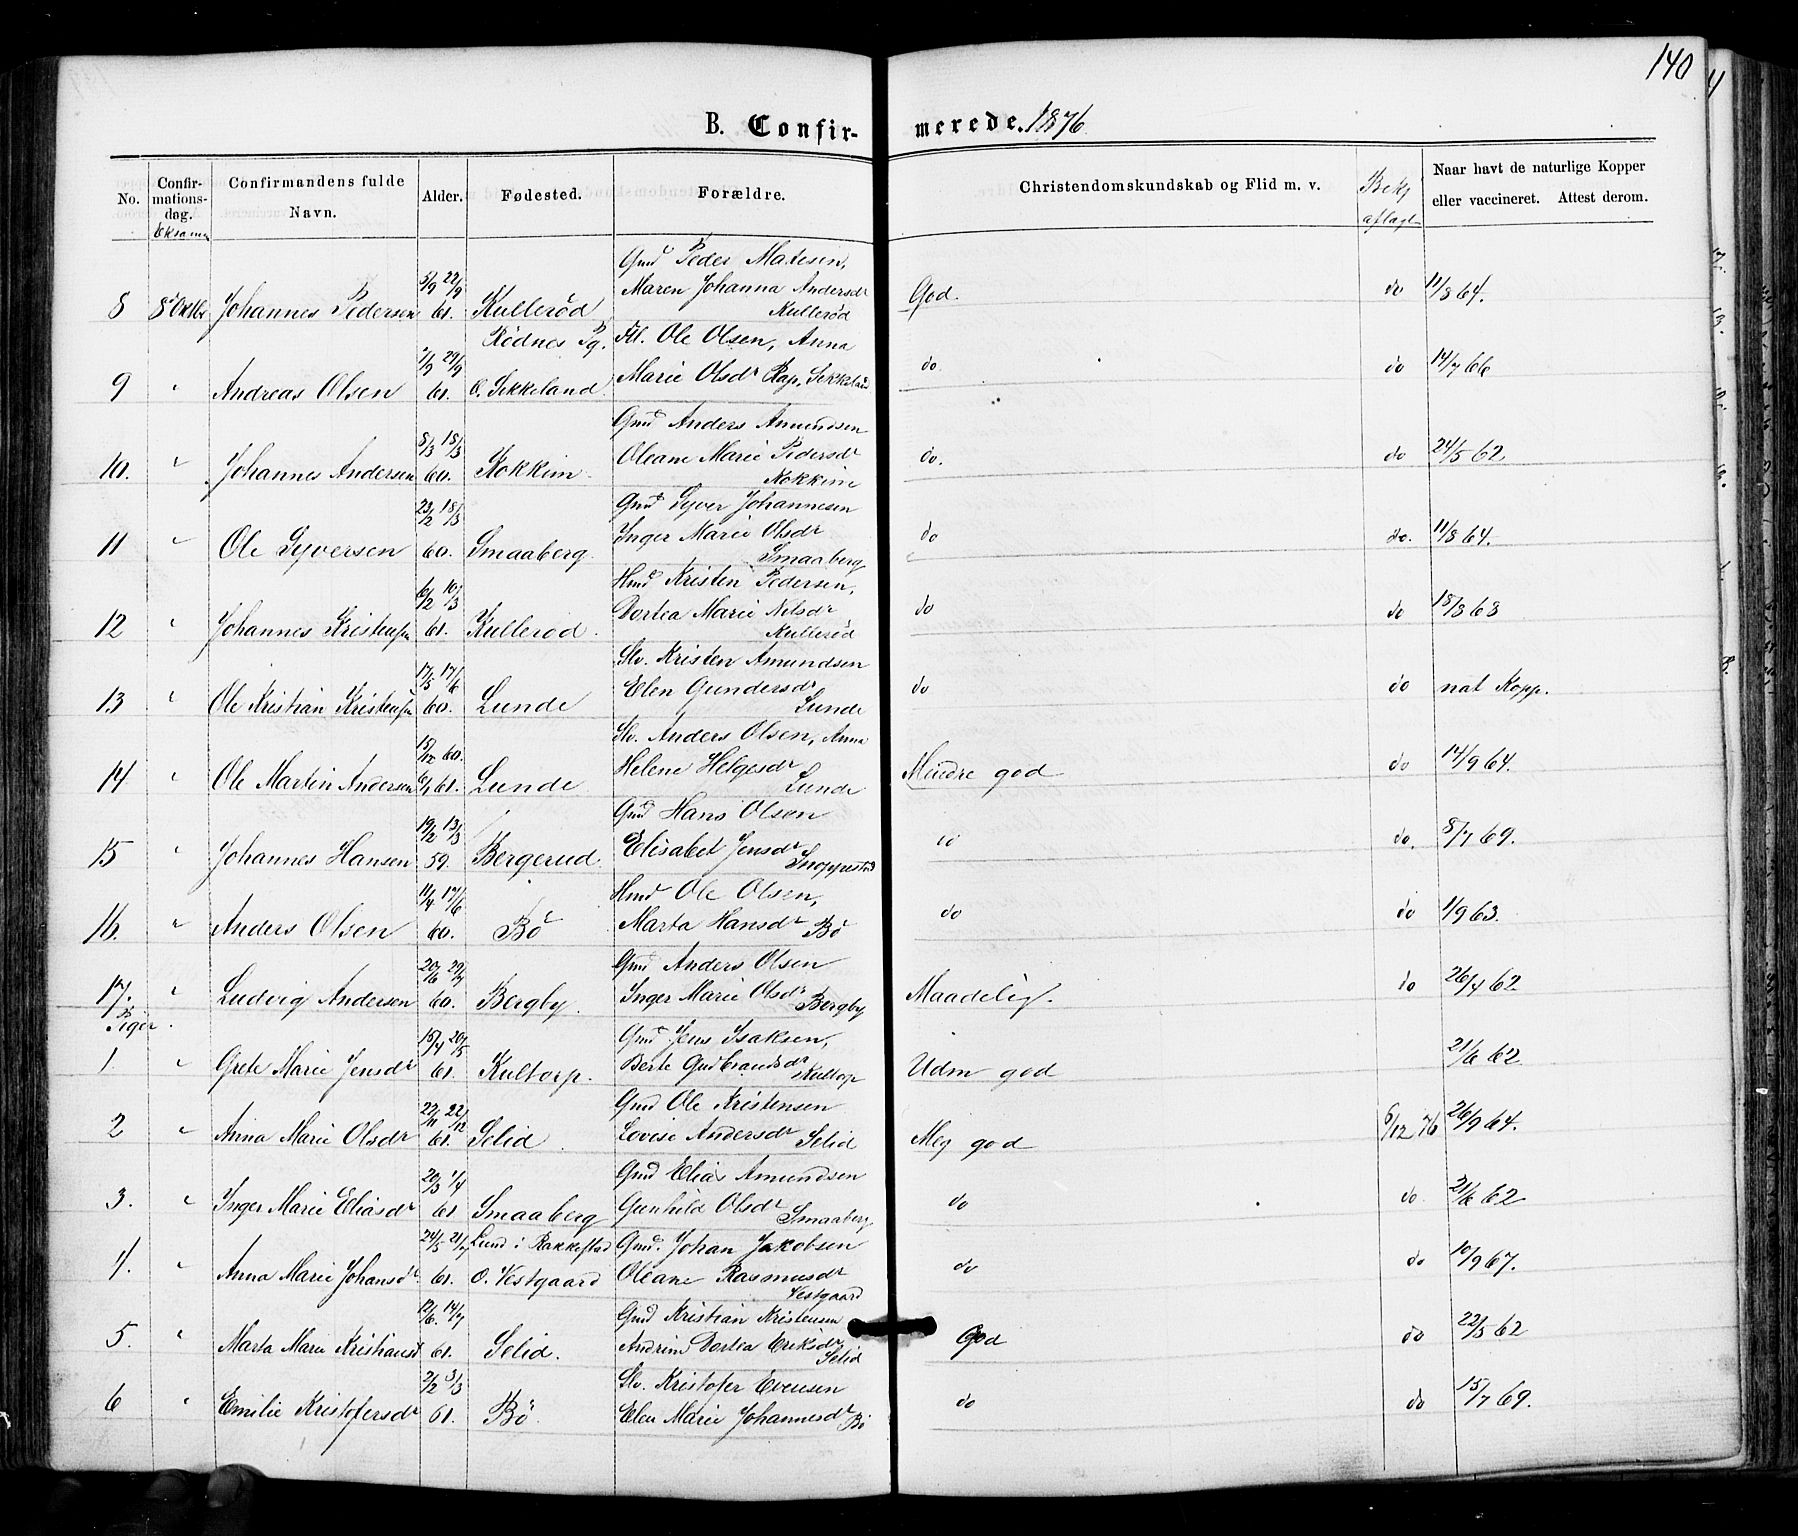 140
B. Confir- merede. 1876
No. Confir-mations-dag. Eksamen Confirmandens fulde Navn. Alder. Fødested. Forældre. Christendomskundskab og Flid m. v. Bek. aflagt Naar havt de naturlige Kopper eller vaccineret. Attest derom.
Gmd Peder Matesen,
8 8 Oktbr Johannes Pedersen 5/9 22/9 61. Kullerød Maren Johanna Andersdr Kullerød God. do 11/8 64.
Rødnes Pg. Fl. Ole Olsen, Anna
9 " Andreas Olsen 1/9 29/9 61. O. Sekkeland Marie Olsdr Rap. Sekkeland do. do 14/7 66
Gmd Anders Amundsen
10. " Johannes Andersen 8/3 18/3 60. Kokkim Oleane Marie Pedersdr Kokkim do. do 24/5 62
Gmd Syver Johannesen
11 " Ole Syversen 23/2 18/3 60. Smaaberg. Inger Marie Olsdr Smaaberg do do. 11/8 64.
Hmd Kristen Pedersen,
12 " Johannes Kristensen 6/2 10/3 61. Kullerød. Dortea Marie Nelsdr Kullerød do do 18/8 63
Slv. Kristen Amundsen
13 " Ole Kristian Kristensen 17/5 17/6 60. Lunde Elen Gundersdr Lunde do do nat Kopp.
Slv. Anders Olsen, Anna
14 " Ole Martin Andersen 15/12 60. 6/1 61. Lunde Helene Helgesdr Lunde Mindre god do 14/9 64.
Gmd Hans Olsen
15 " Johannes Hansen 19/2 13/3 59. Bergerud Elisabet Jensdr Snoppestad do do. 8/7 69.
Hmd Ole Olsen,
16. " Anders Olsen 11/4 17/6 60. Bö Marta Hansdr Bö do do 1/9 63.
Gmd Anders Olsen
17. " Ludvig Andersen 20/6 29/7 60. Bergby. Inger Marie Olsdr Bergby Maadelig. do 26/4 62
Piger.
Gmd Jens Isaksen,
1. " Grete Marie Jensdr 15/4 20/5 61. Kultorp. Berte Gudbrandsdr Kultorp Udm god 21/6 62.
Gmd Ole Kristensen
2 " Anna Marie Olsdr 22/11 22/12 61. Selid. Lovise Andersdr Selid Meg god 6/12 76 26/9 64.
Gmd Elias Amundsen
3. " Inger Marie Eliasdr 20/3 1/4 61 Smaaberg Gunhild Olsdr Smaaberg do do. 21/6 62
Lund i Rakkestad Gmd. Johan Jakobsen
4. " Anna Marie Johansdr 24/5 21/7 61. O. Vestgaard Oleane Rasmusdr Vestgaard do do 10/9 67.
Gmd Kristian Kristensen
5. " Marta Marie Kristiansd 12/6. 14/7 61. Selid. Andrine Dortea Eriksdr Selid God do 22/5 62
Slv. Kristofer Evensen
6 " Emilie Kristofersdr 2/2 3/3 61. Bö. Elen Marie Johannesdr Bö do do 15/7 69.